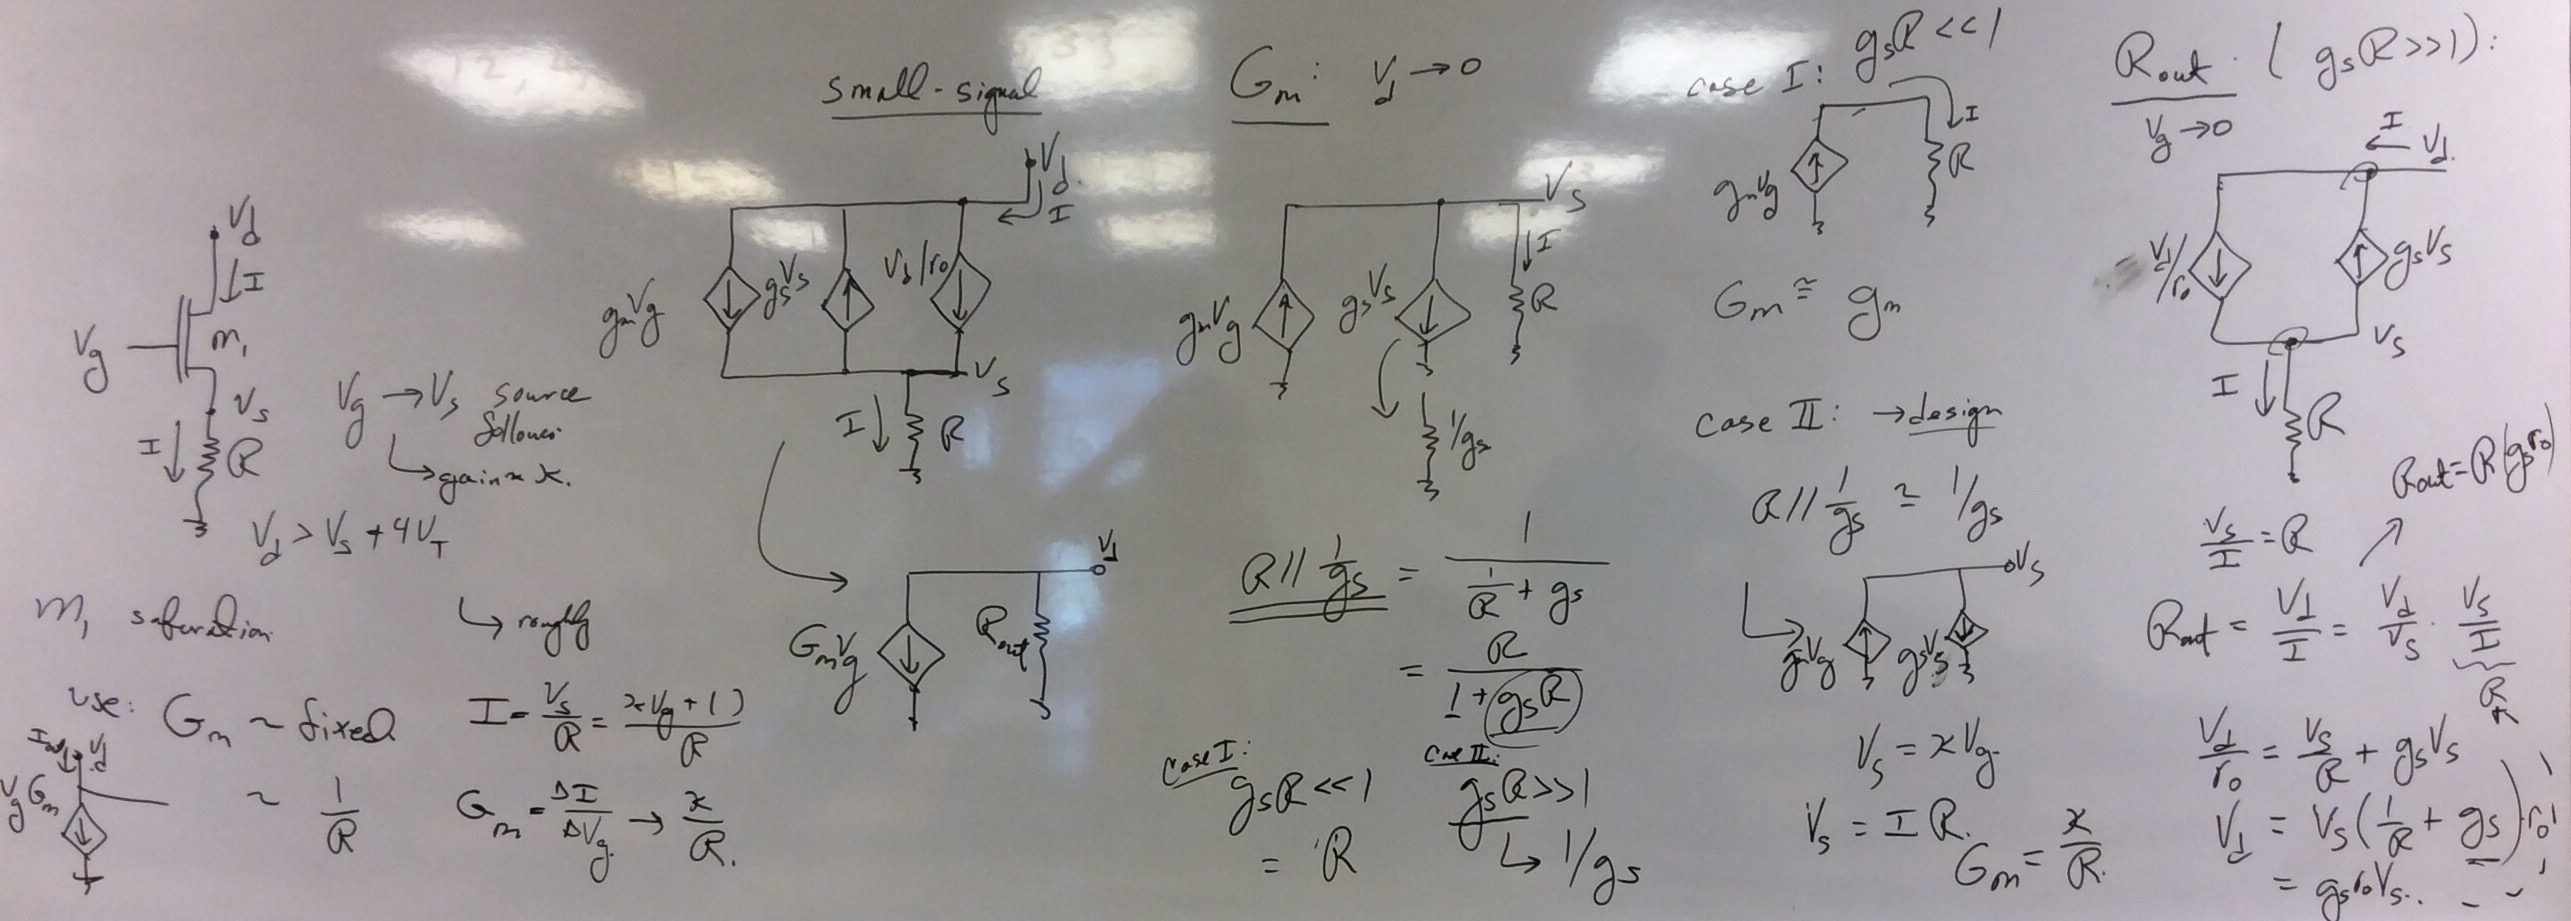 V_d
I
V_g
M_1
V_s
I
R
V_g → V_s source
follower
↳ gain ≈ κ.
V_d > V_s + 4U_T
M_1 saturation
↳ roughly
use: G_m ~ fixed
~ 1/R
V_d
V_g G_m
I = V_s/R = (κV_g + ( ))/R
G_m = ΔI/ΔV_g → κ/R.
small-signal
V_d
I
g_m V_g
g_s V_s
V_d/r_o
V_s
I
R
V_d
G_m V_g
R_out
G_m: V_d → 0
V_s
I
g_m V_g
g_s V_s
R
1/g_s
R // 1/g_s = 1/(1/R + g_s)
= R/(1 + g_s R)
Case I:
g_s R << 1
= R
Case II:
g_s R >> 1
↳ 1/g_s
case I: g_s R << 1
I
g_m V_g
R
G_m ≅ g_m
case II: → design
R // 1/g_s ≃ 1/g_s
V_s
g_m V_g
g_s V_s
V_s = κV_g
V_s = I R.
G_m = κ/R.
R_out (g_s R >> 1):
V_g → 0
I
V_d
V_d/r_o
g_s V_s
V_s
I
R
R_out = R(g_s r_o)
V_s/I = R
R_out = V_d/I = V_d/V_s · V_s/I
R
V_d/r_o = V_s/R + g_s V_s
V_d = V_s(1/R + g_s) r_o
= g_s r_o V_s.